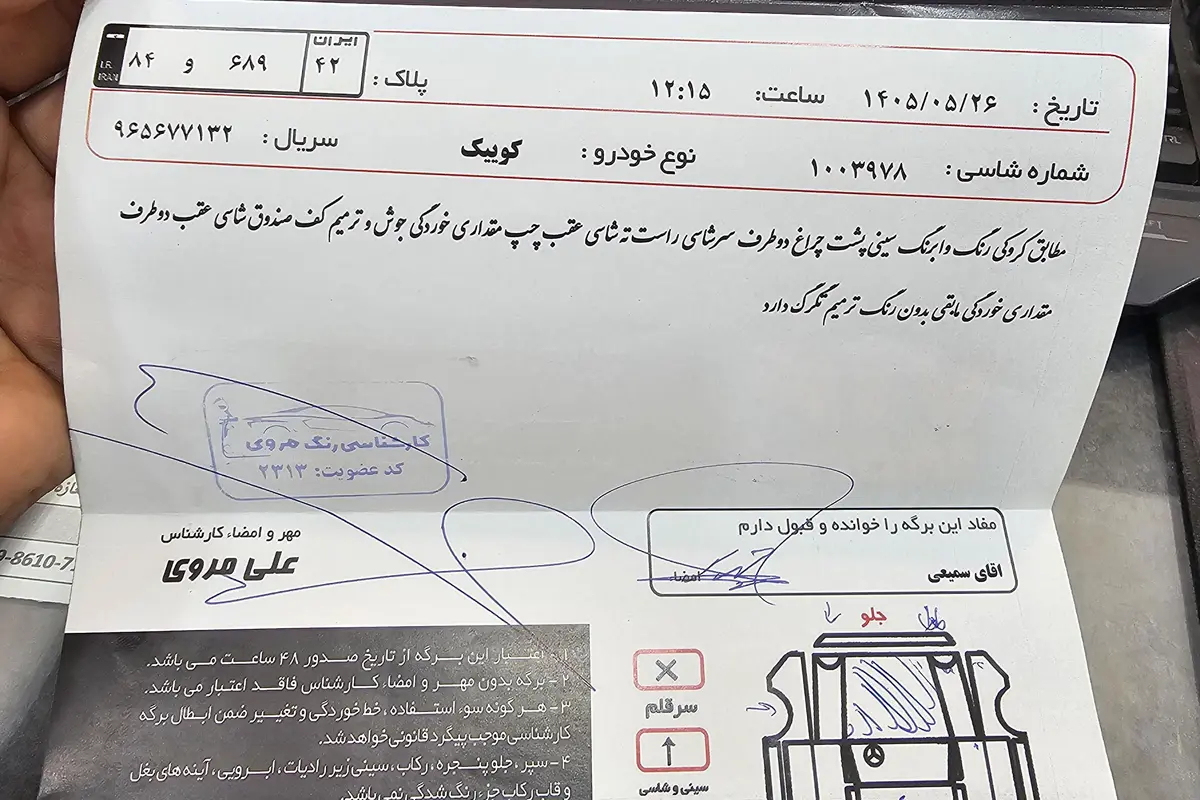 تاریخ : ۱۴۰۵/۰۵/۲۶ ساعت: ۱۲:۱۵ پلاک : ایران ۴۲ ۶۸۹ و ۸۴ I.R. IRAN
شماره شاسی : ۱۰۰۳۹۷۸ نوع خودرو : کوییک سریال : ۹۶۵۶۷۷۱۳۲
مطابق کروکی رنگ وابرنگ سینی پشت چراغ دوطرف سرشاسی راست ته شاسی عقب چپ مقداری خوردگی جوش و ترمیم کف صندوق شاسی عقب دوطرف
مقداری خوردگی مابقی بدون رنگ ترمیم تگرگ دارد
کارشناسی رنگ مروی
کد عضویت: ۲۳۱۳
مهر و امضاء کارشناس
علی مروی
مفاد این برگه را خوانده و قبول دارم
اقای سمیعی امضاء
جلو
سرقلم
سینی و شاسی
۱ - اعتبار این برگه از تاریخ صدور ۴۸ ساعت می باشد.
۲ - برگه بدون مهر و امضاء کارشناس فاقد اعتبار می باشد.
۳ - هر گونه سوء استفاده ، خط خوردگی و تغییر ضمن ابطال برگه
کارشناسی موجب پیگرد قانونی خواهد شد.
۴ - سپر ، جلو پنجره ، رکاب ، سینی زیر رادیات ، ابرویی ، آینه های بغل
و قاب رکاب جزء رنگ شدگی نمی باشد.